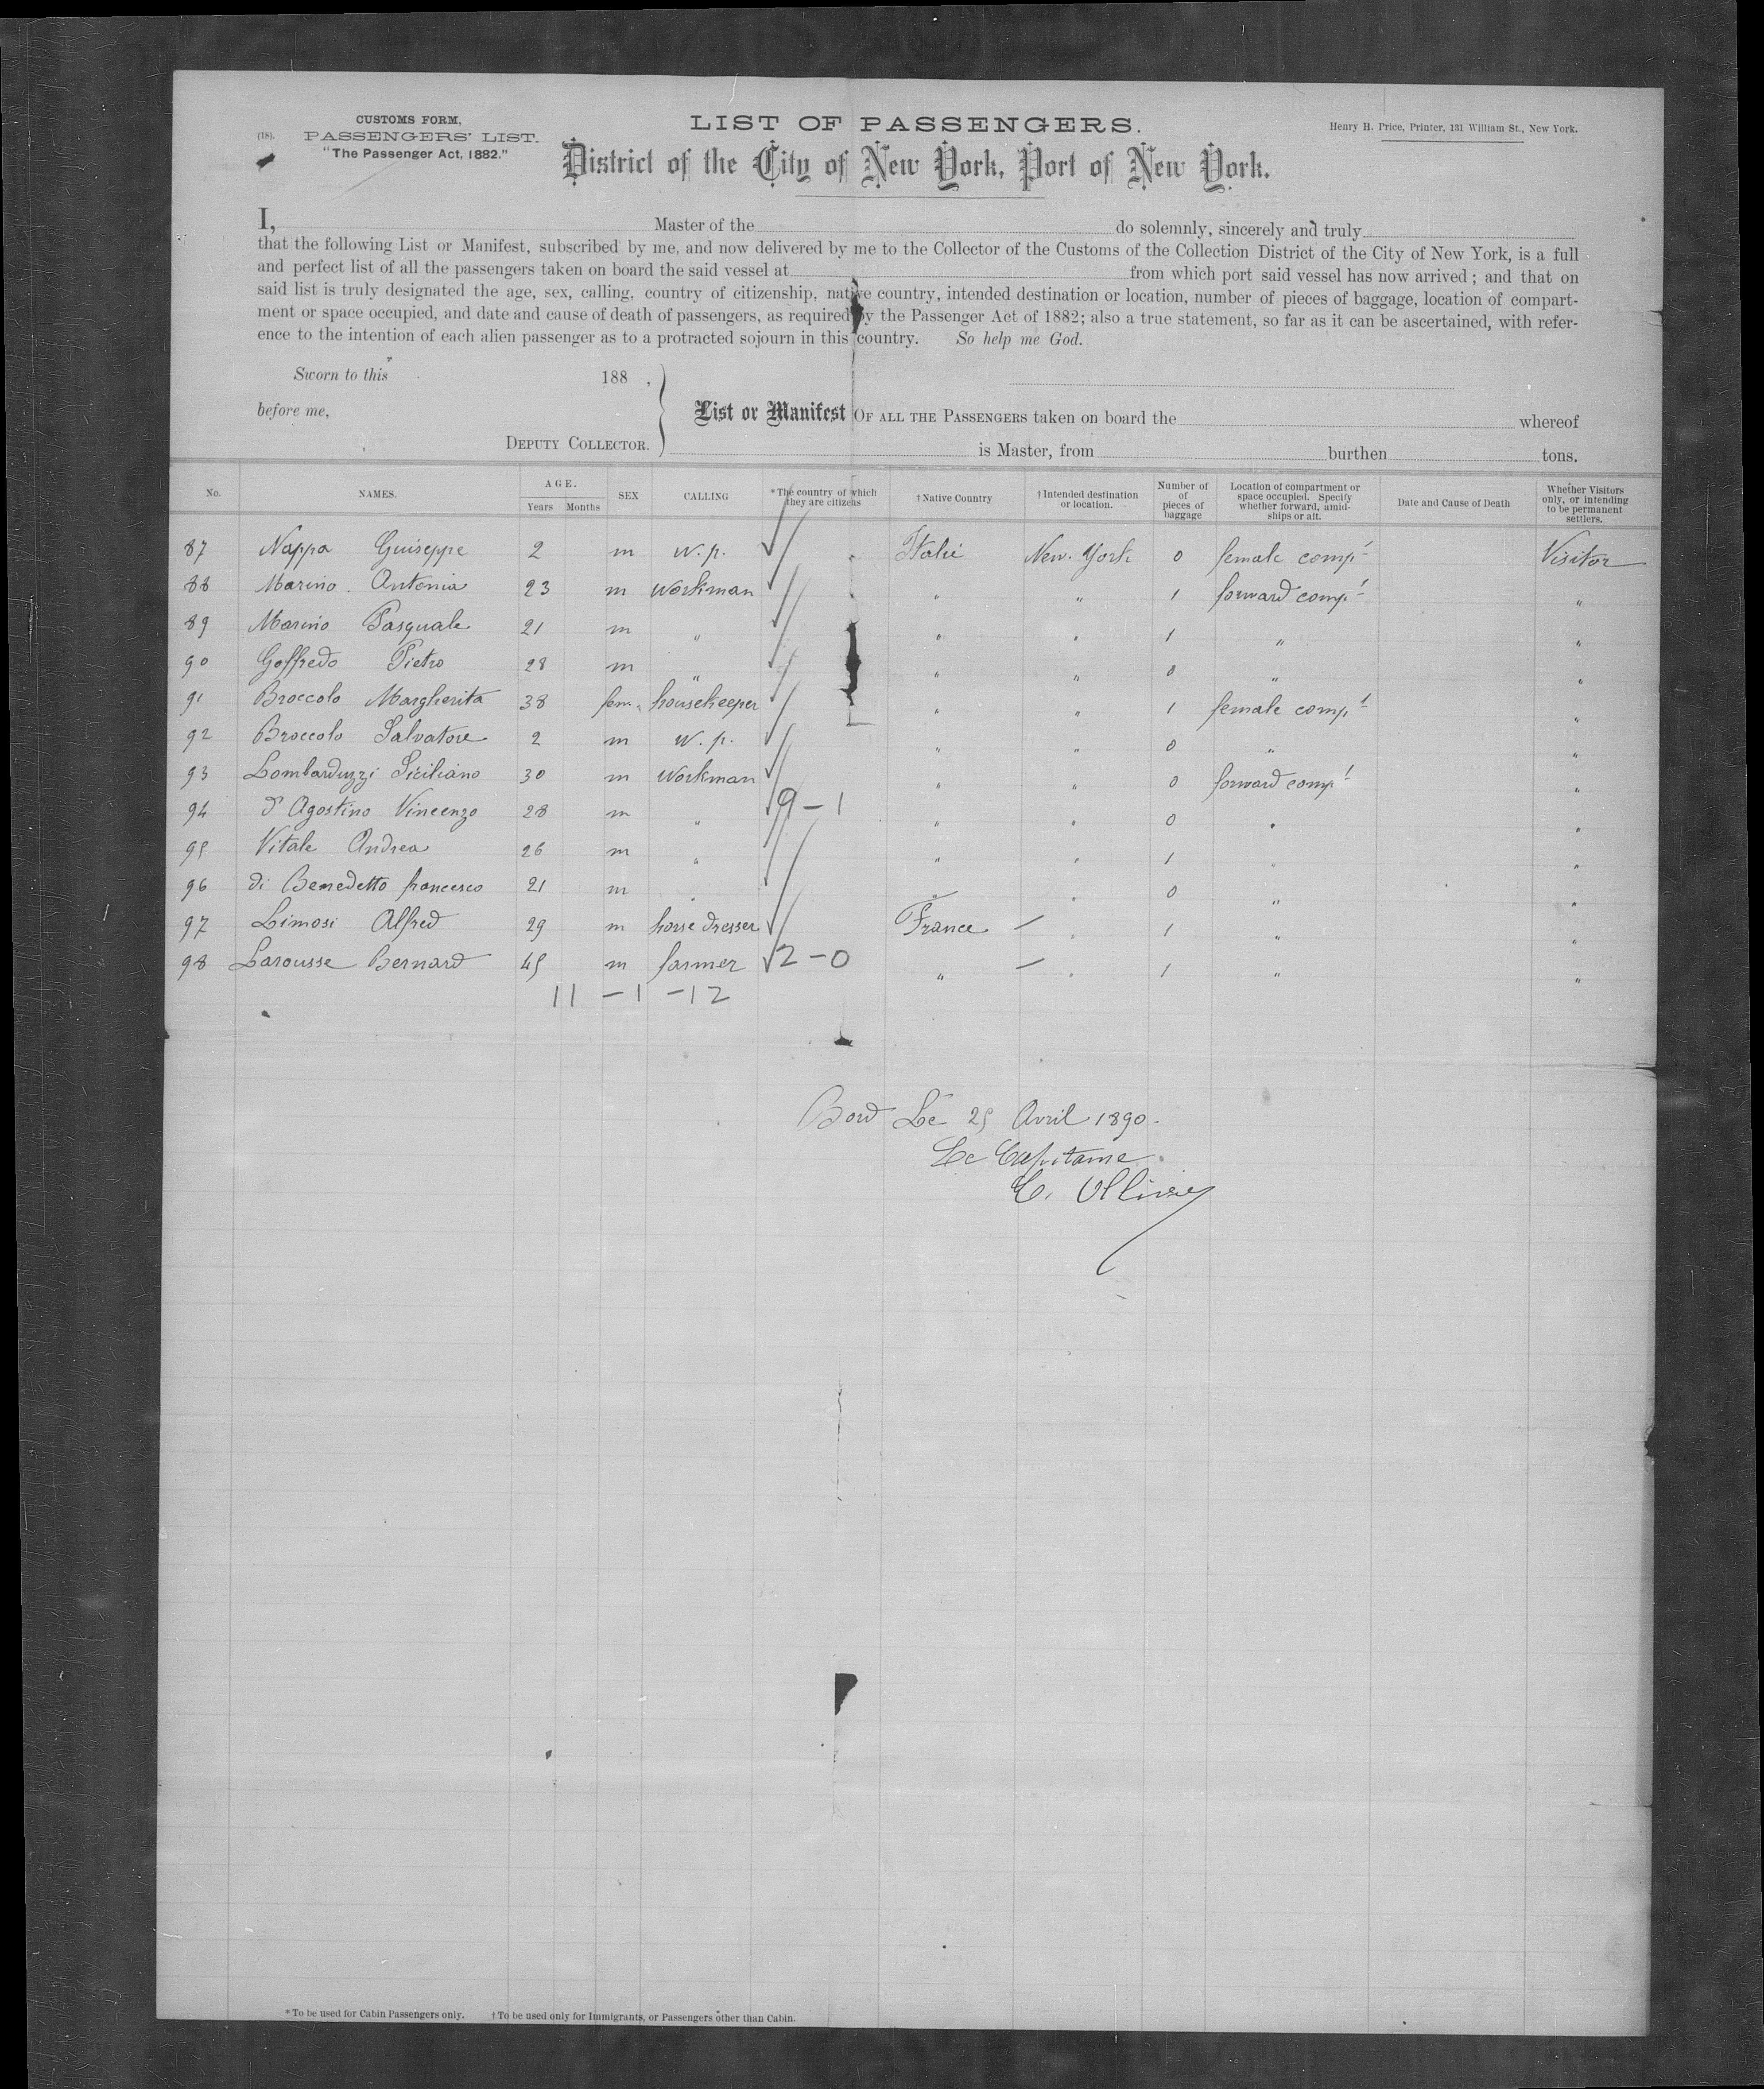 CUSTOMS FORM,
(18). PASSENGERS' LIST.
"The Passenger Act, 1882."
LIST OF PASSENGERS.
Henry H. Price, Printer, 131 William St., New York.
District of the City of New York, Port of New York.
I, Master of the do solemnly, sincerely and truly
that the following List or Manifest, subscribed by me, and now delivered by me to the Collector of the Customs of the Collection District of the City of New York, is a full
and perfect list of all the passengers taken on board the said vessel at from which port said vessel has now arrived; and that on
said list is truly designated the age, sex, calling, country of citizenship, native country, intended destination or location, number of pieces of baggage, location of compart-
ment or space occupied, and date and cause of death of passengers, as required by the Passenger Act of 1882; also a true statement, so far as it can be ascertained, with refer-
ence to the intention of each alien passenger as to a protracted sojourn in this country. So help me God.
Sworn to this 188 ,
before me,
DEPUTY COLLECTOR.
List or Manifest OF ALL THE PASSENGERS taken on board the whereof
is Master, from burthen tons.
No. NAMES. AGE. Years Months SEX CALLING *The country of which they are citizens †Native Country †Intended destination or location. Number of of pieces of baggage Location of compartment or space occupied. Specify whether forward, amid-ships or aft. Date and Cause of Death Whether Visitors only, or intending to be permanent settlers.
87 Nappa Guiseppe 2 m w. p. Italie New. York 0 female compt Visitor
88 Marino Antonia 23 m workman " " 1 forward compt "
89 Marino Pasquale 21 m " " " 1 " "
90 Goffredo Pietro 28 m " " " 0 " "
91 Broccolo Margherita 38 fem. housekeeper " " 1 female compt "
92 Broccolo Salvatore 2 m w. p. " " 0 " "
93 Lombarduzzi Siciliano 30 m workman " " 0 forward compt "
94 d'Agostino Vincenzo 28 m " 9-1 " " 0 " "
95 Vitale Andrea 26 m " " " 1 " "
96 di Benedetto francesco 21 m " " " 0 " "
97 Limosi Alfred 29 m horse dresser France " 1 " "
98 Larousse Bernard 45 m farmer 2-0 " " 1 " "
11 - 1 - 12
Bord Le 25 Avril 1890.
Le Capitaine
C. Ollivier
*To be used for Cabin Passengers only. †To be used only for Immigrants, or Passengers other than Cabin.